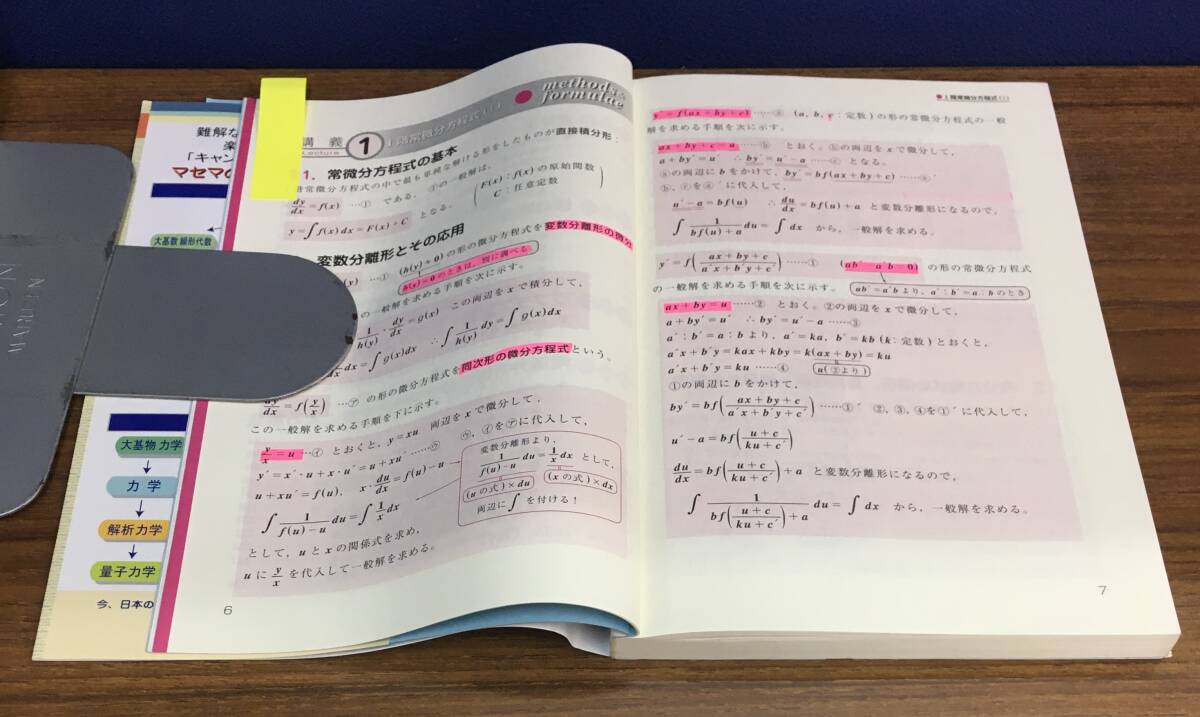 難解な
「キャン
マセマの
大基数 線形代数
大基物 力学
力 学
解析力学
量子力学
今、日本の
講 義 1 1階常微分方程式(I)
Lecture
methods &
formulae
1. 常微分方程式の基本
階常微分方程式の中で最も単純な解ける形をしたものが直接積分形:
dy/dx = f(x) …① である。①の一般解は、
y=∫f(x)dx=F(x)+C となる。
(F(x):f(x)の原始関数
C:任意定数)
変数分離形とその応用
…① (h(y)≠0)の形の微分方程式を変数分離形の微分
h(y)=0のときは,別に調べる
の一般解を求める手順を次に示す。
1/h(y)・dy/dx=g(x) この両辺をxで積分して,
dx=∫g(x)dx ∴∫1/h(y) dy=∫g(x)dx
dy/dx=f(y/x) …㋐ の形の微分方程式を同次形の微分方程式という。
この一般解を求める手順を下に示す。
y/x=u …㋑ とおくと, y=xu 両辺をxで微分して,
y´=x´・u+x・u´=u+xu´……㋒ ㋒,㋑を㋐に代入して,
u+xu´=f(u), x・du/dx=f(u)-u
∫1/(f(u)-u) du=∫1/x dx
変数分離形より,
1/(f(u)-u) du=1/x dx として,
(uの式)×du (xの式)×dx
両辺に∫を付ける!
として, uとxの関係式を求め,
uにy/xを代入して一般解を求める。
6
●1階常微分方程式(I)
y´=f(ax+by+c)……ⓐ (a, b, c:定数)の形の常微分方程式の一般
解を求める手順を次に示す。
ax+by+c=u……ⓑ とおく。ⓑの両辺をxで微分して,
a+by´=u´ ∴by´=u´-a……ⓒとなる。
ⓐの両辺にbをかけて, by´=bf(ax+by+c)……ⓐ´
ⓑ, ⓒをⓐ´に代入して,
u´-a=bf(u) ∴du/dx=bf(u)+a と変数分離形になるので,
∫1/(bf(u)+a) du=∫dx から, 一般解を求める。
y´=f((ax+by+c)/(a´x+b´y+c´))……① (ab´-a´b=0) の形の常微分方程式
の一般解を求める手順を次に示す。
ab´=a´bより, a´:b´=a:bのとき
ax+by=u……② とおく。②の両辺をxで微分して,
a+by´=u´ ∴by´=u´-a……③
a´:b´=a:bより, a´=ka, b´=kb (k:定数)とおくと,
a´x+b´y=kax+kby=k(ax+by)=ku
a´x+b´y=ku……④ u(②より)
①の両辺にbをかけて,
by´=bf((ax+by+c)/(a´x+b´y+c´))……①´ ②,③,④を①´に代入して,
u´-a=bf((u+c)/(ku+c´))
du/dx=bf((u+c)/(ku+c´))+a と変数分離形になるので,
∫1/(bf((u+c)/(ku+c´))+a) du=∫dx から, 一般解を求める。
7